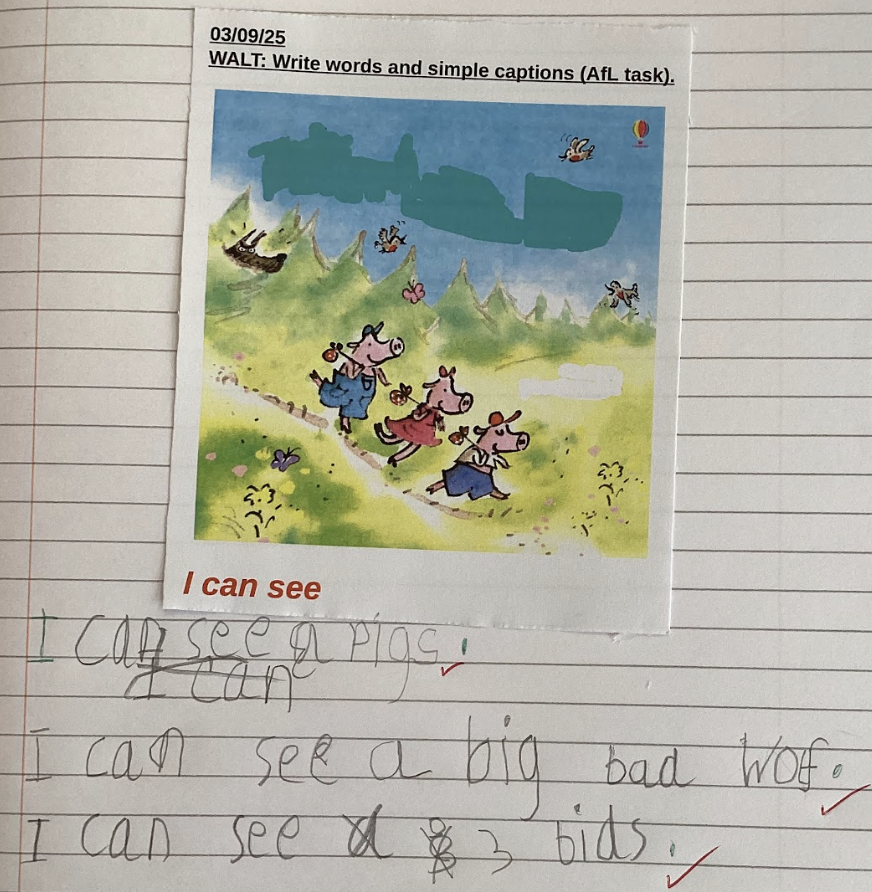 03/09/25
WALT: Write words and simple captions (AfL task).
I can see
I can see a pigs.
I can
I can see a big bad wof.
I can see 3 bids.